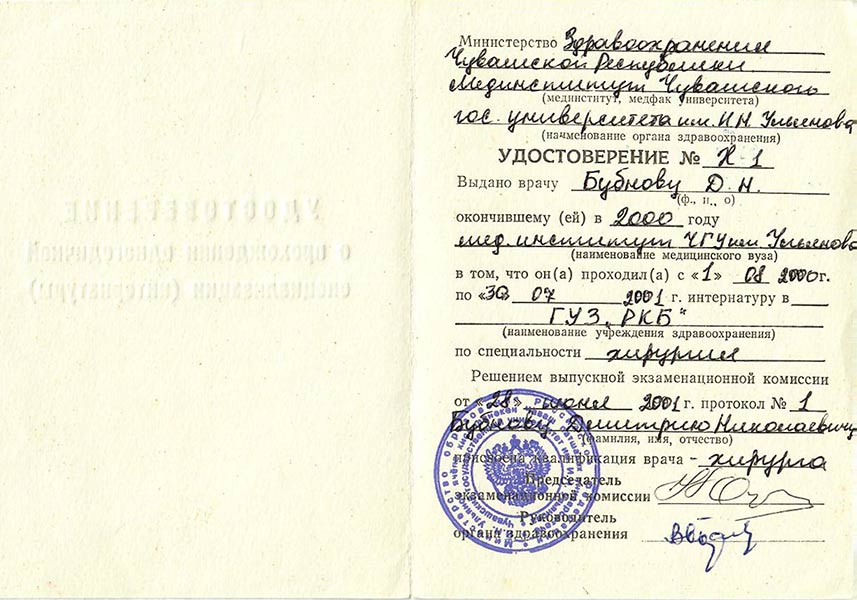 Министерство Здравоохранения
Чувашской Республики
Мединститут Чувашского
(мединститут, медфак университета)
гос. университета им. И.Н. Ульянова
(наименование органа здравоохранения)
УДОСТОВЕРЕНИЕ № Х-1
Выдано врачу Бубнову Д. Н.
(ф., и., о)
окончившему (ей) в 2000 году
мед. институт ЧГУ им Ульянова
(наименование медицинского вуза)
в том, что он(а) проходил(а) с «1» 08 2000г.
по «30» 07 2001 г. интернатуру в
ГУЗ „РКБ"
(наименование учреждения здравоохранения)
по специальности хирургия
Решением выпускной экзаменационной комиссии
от «28» июня 2001 г. протокол № 1
Бубнову Дмитрию Николаевичу
(фамилия, имя, отчество)
присвоена квалификация врача - хирурга
Председатель
экзаменационной комиссии
Руководитель
органа здравоохранения
УДОСТОВЕРЕНИЕ
о прохождении одногодичной
специализации (интернатуры)